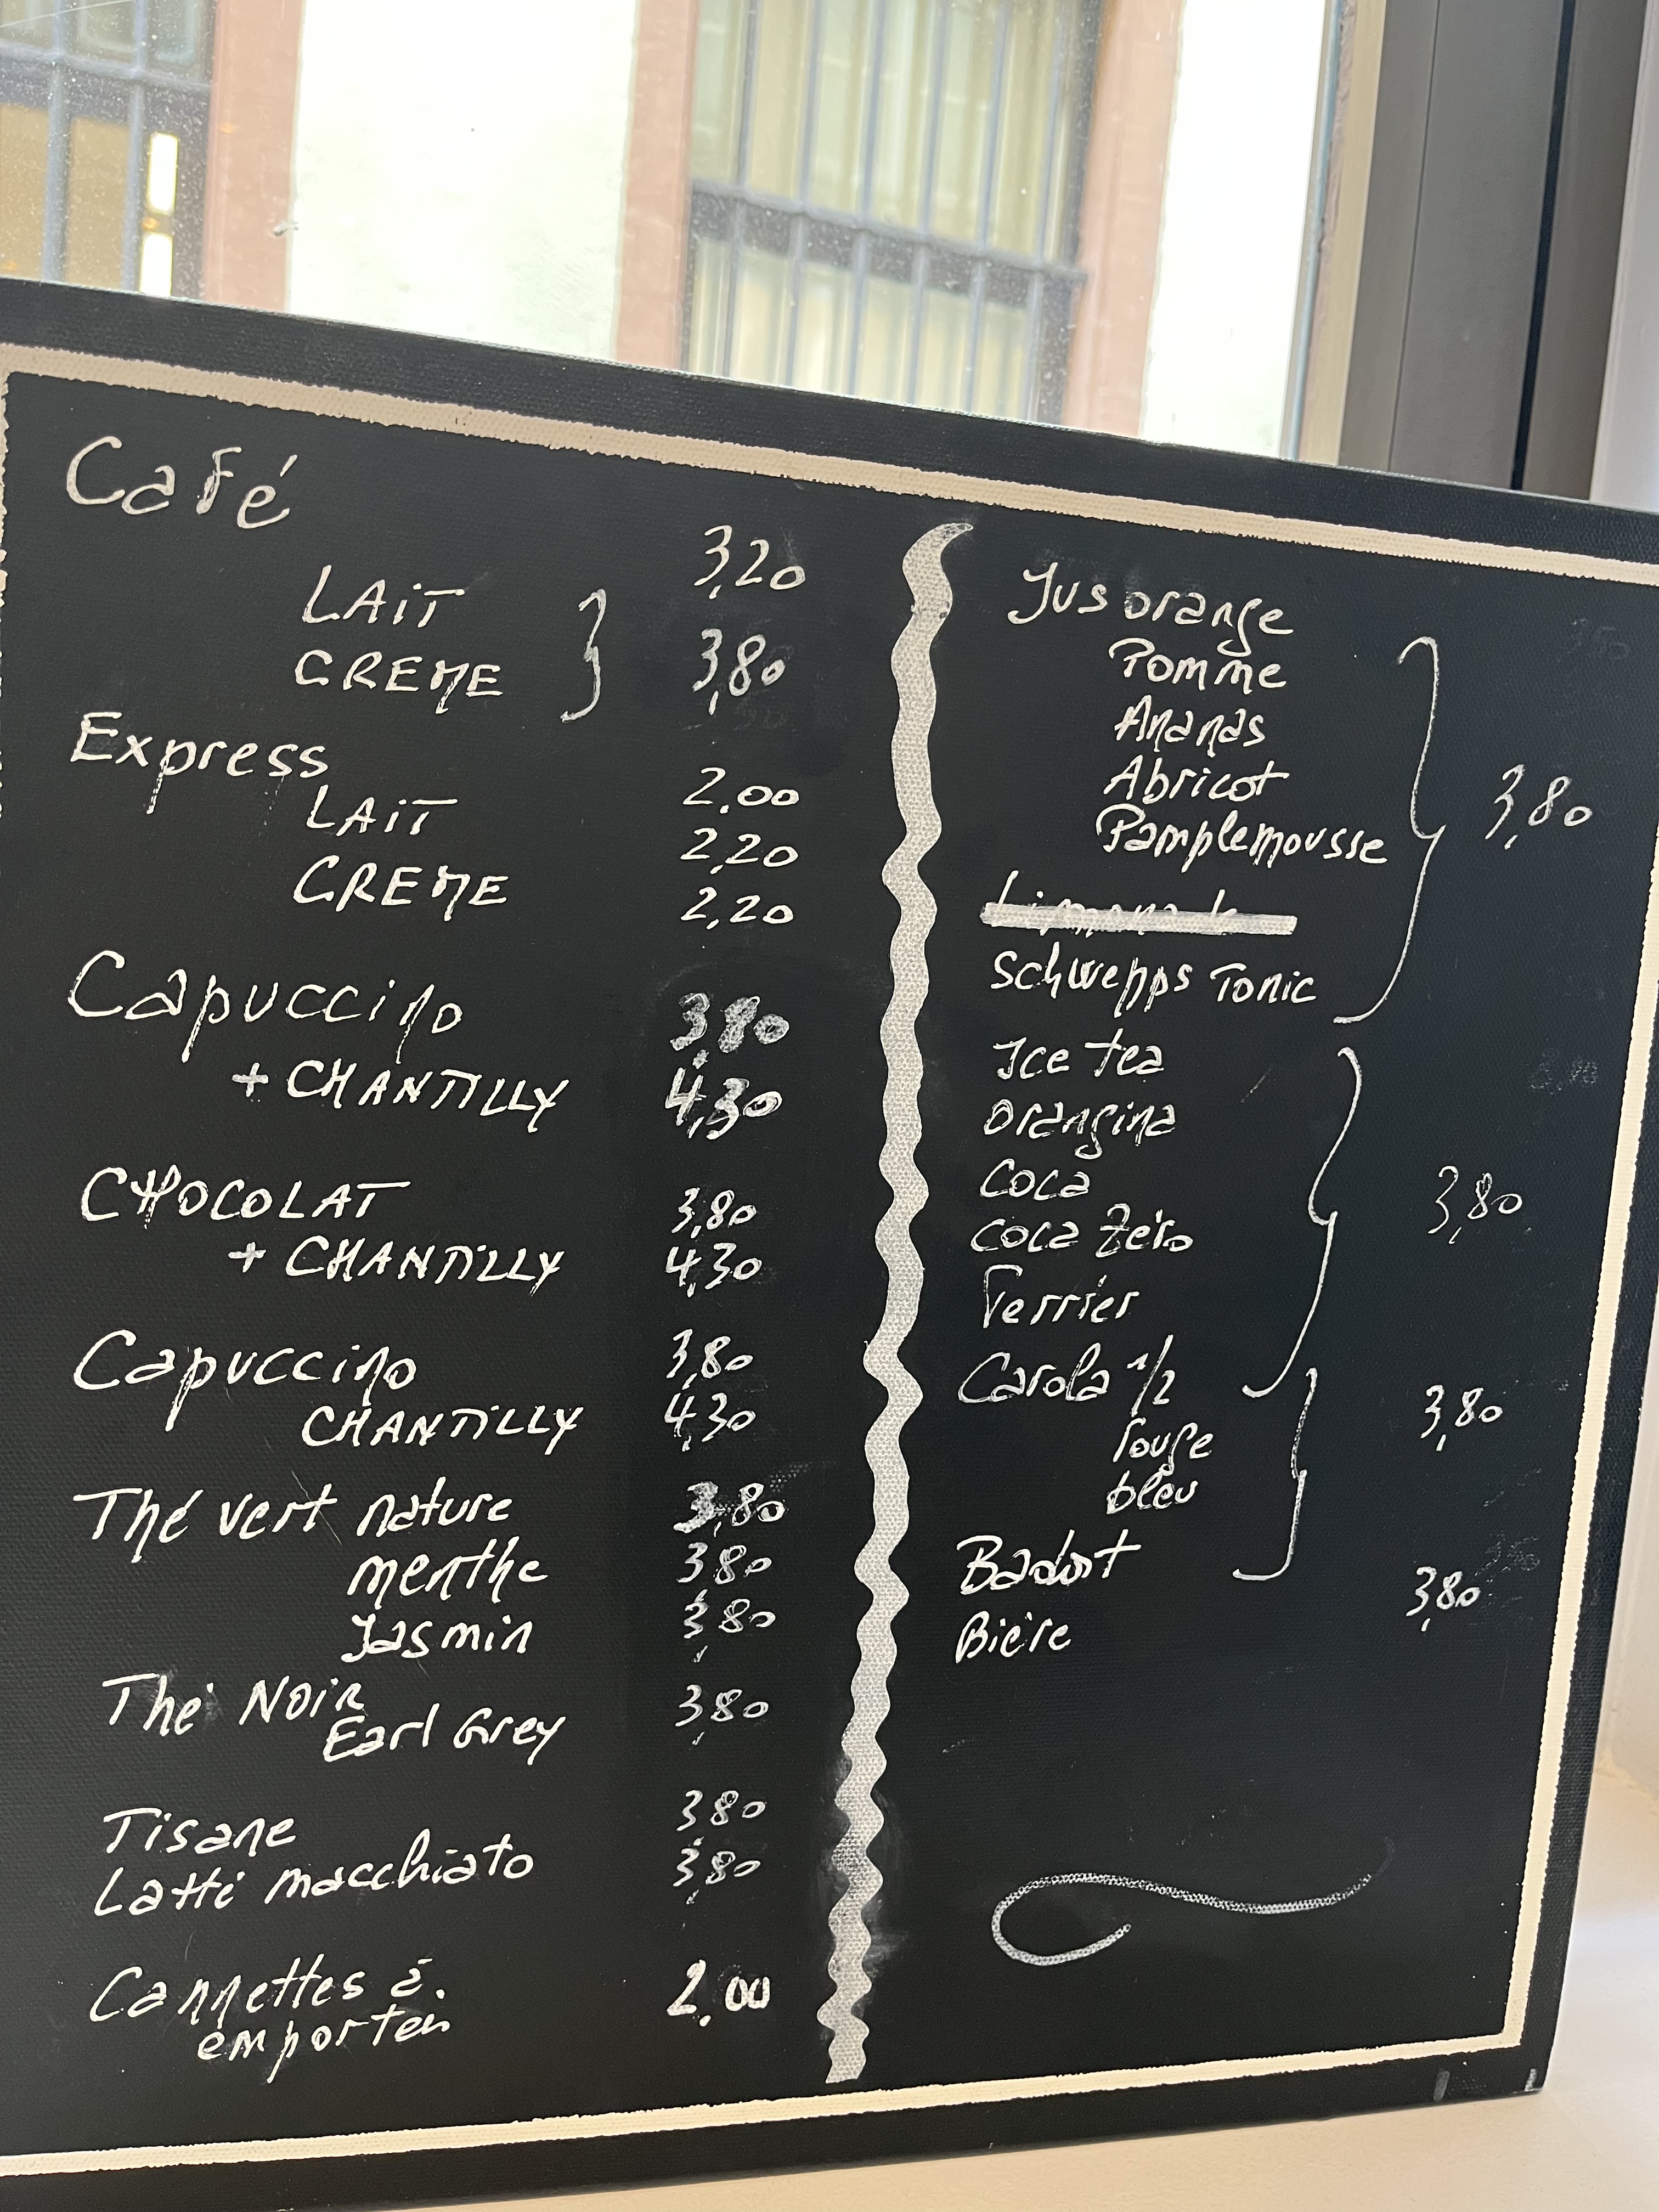 Café
3,20
LAIT
CREME
3,80
Express
2.00
LAIT
2,20
CREME
2,20
Capuccino 3,80
+ CHANTILLY 4,30
CHOCOLAT 3,80
+ CHANTILLY 4,30
Capuccino 3,80
CHANTILLY 4,30
Thé vert nature 3,80
menthe 3,80
Jasmin 3,80
Thé Noir
Earl Grey 3,80
Tisane 3,80
Latté macchiato 3,80
Cannettes à 2.00
emporter
Jus orange
Pomme
Ananas
Abricot
Pamplemousse
3,80
Schwepps Tonic
Ice tea
Orangina
Coca
Coca Zéro
3,80
Perrier
Carola 1/2
rouge
bleu
3,80
Badoit
Bière
3,80